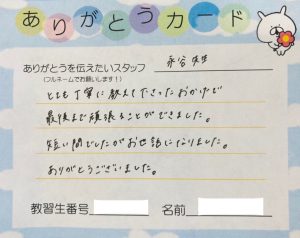 ありがとうカード
ありがとうを伝えたいスタッフ
(フルネームでお願いします!)
先生
とても丁寧に教えて下さったおかげで
最後まで頑張ることができました。
短い間でしたがお世話になりました。
ありがとうございました。
教習生番号 名前